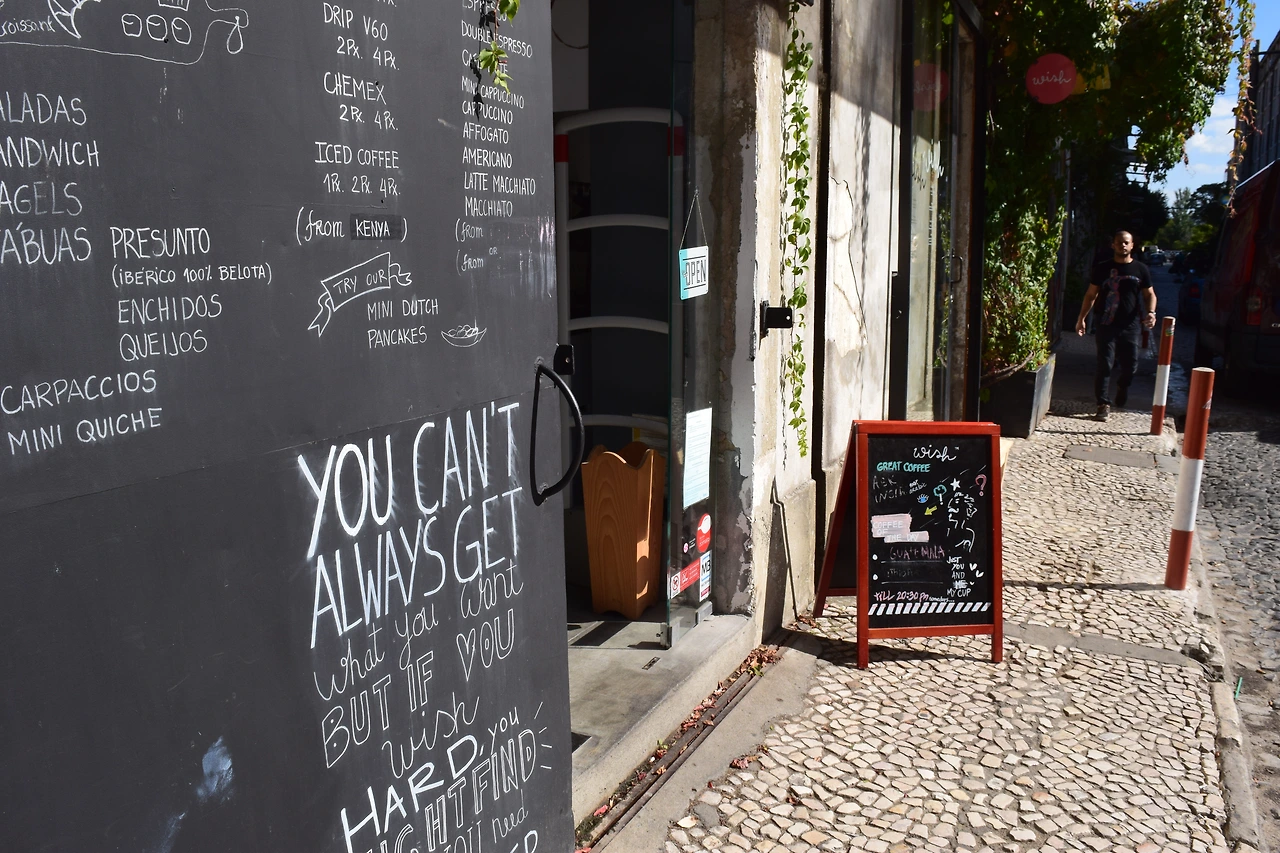 DRIP V60
2Px. 4Px.
CHEMEX
2Px. 4Px.
ICED COFFEE
1Px. 2Px. 4Px.
(from KENYA)
TRY OUR
MINI DUTCH
PANCAKES
DOUBLE ESPRESSO
MINI CAPPUCCINO
CAPPUCCINO
AFFOGATO
AMERICANO
LATTE MACCHIATO
MACCHIATO
(from
or
(from
ALADAS
ANDWICH
AGELS
TÁBUAS PRESUNTO
(IBÉRICO 100% BELOTA)
ENCHIDOS
QUEIJOS
CARPACCIOS
MINI QUICHE
YOU CAN'T
ALWAYS GET
what you want
BUT IF YOU
wish
HARD, you
FIND
you need
OPEN
wish
wish
GREAT COFFEE
ASK
COFFEE
THE DAY
GUATEMALA
JUST
YOU
AND
MY CUP
TILL 20:30 PM